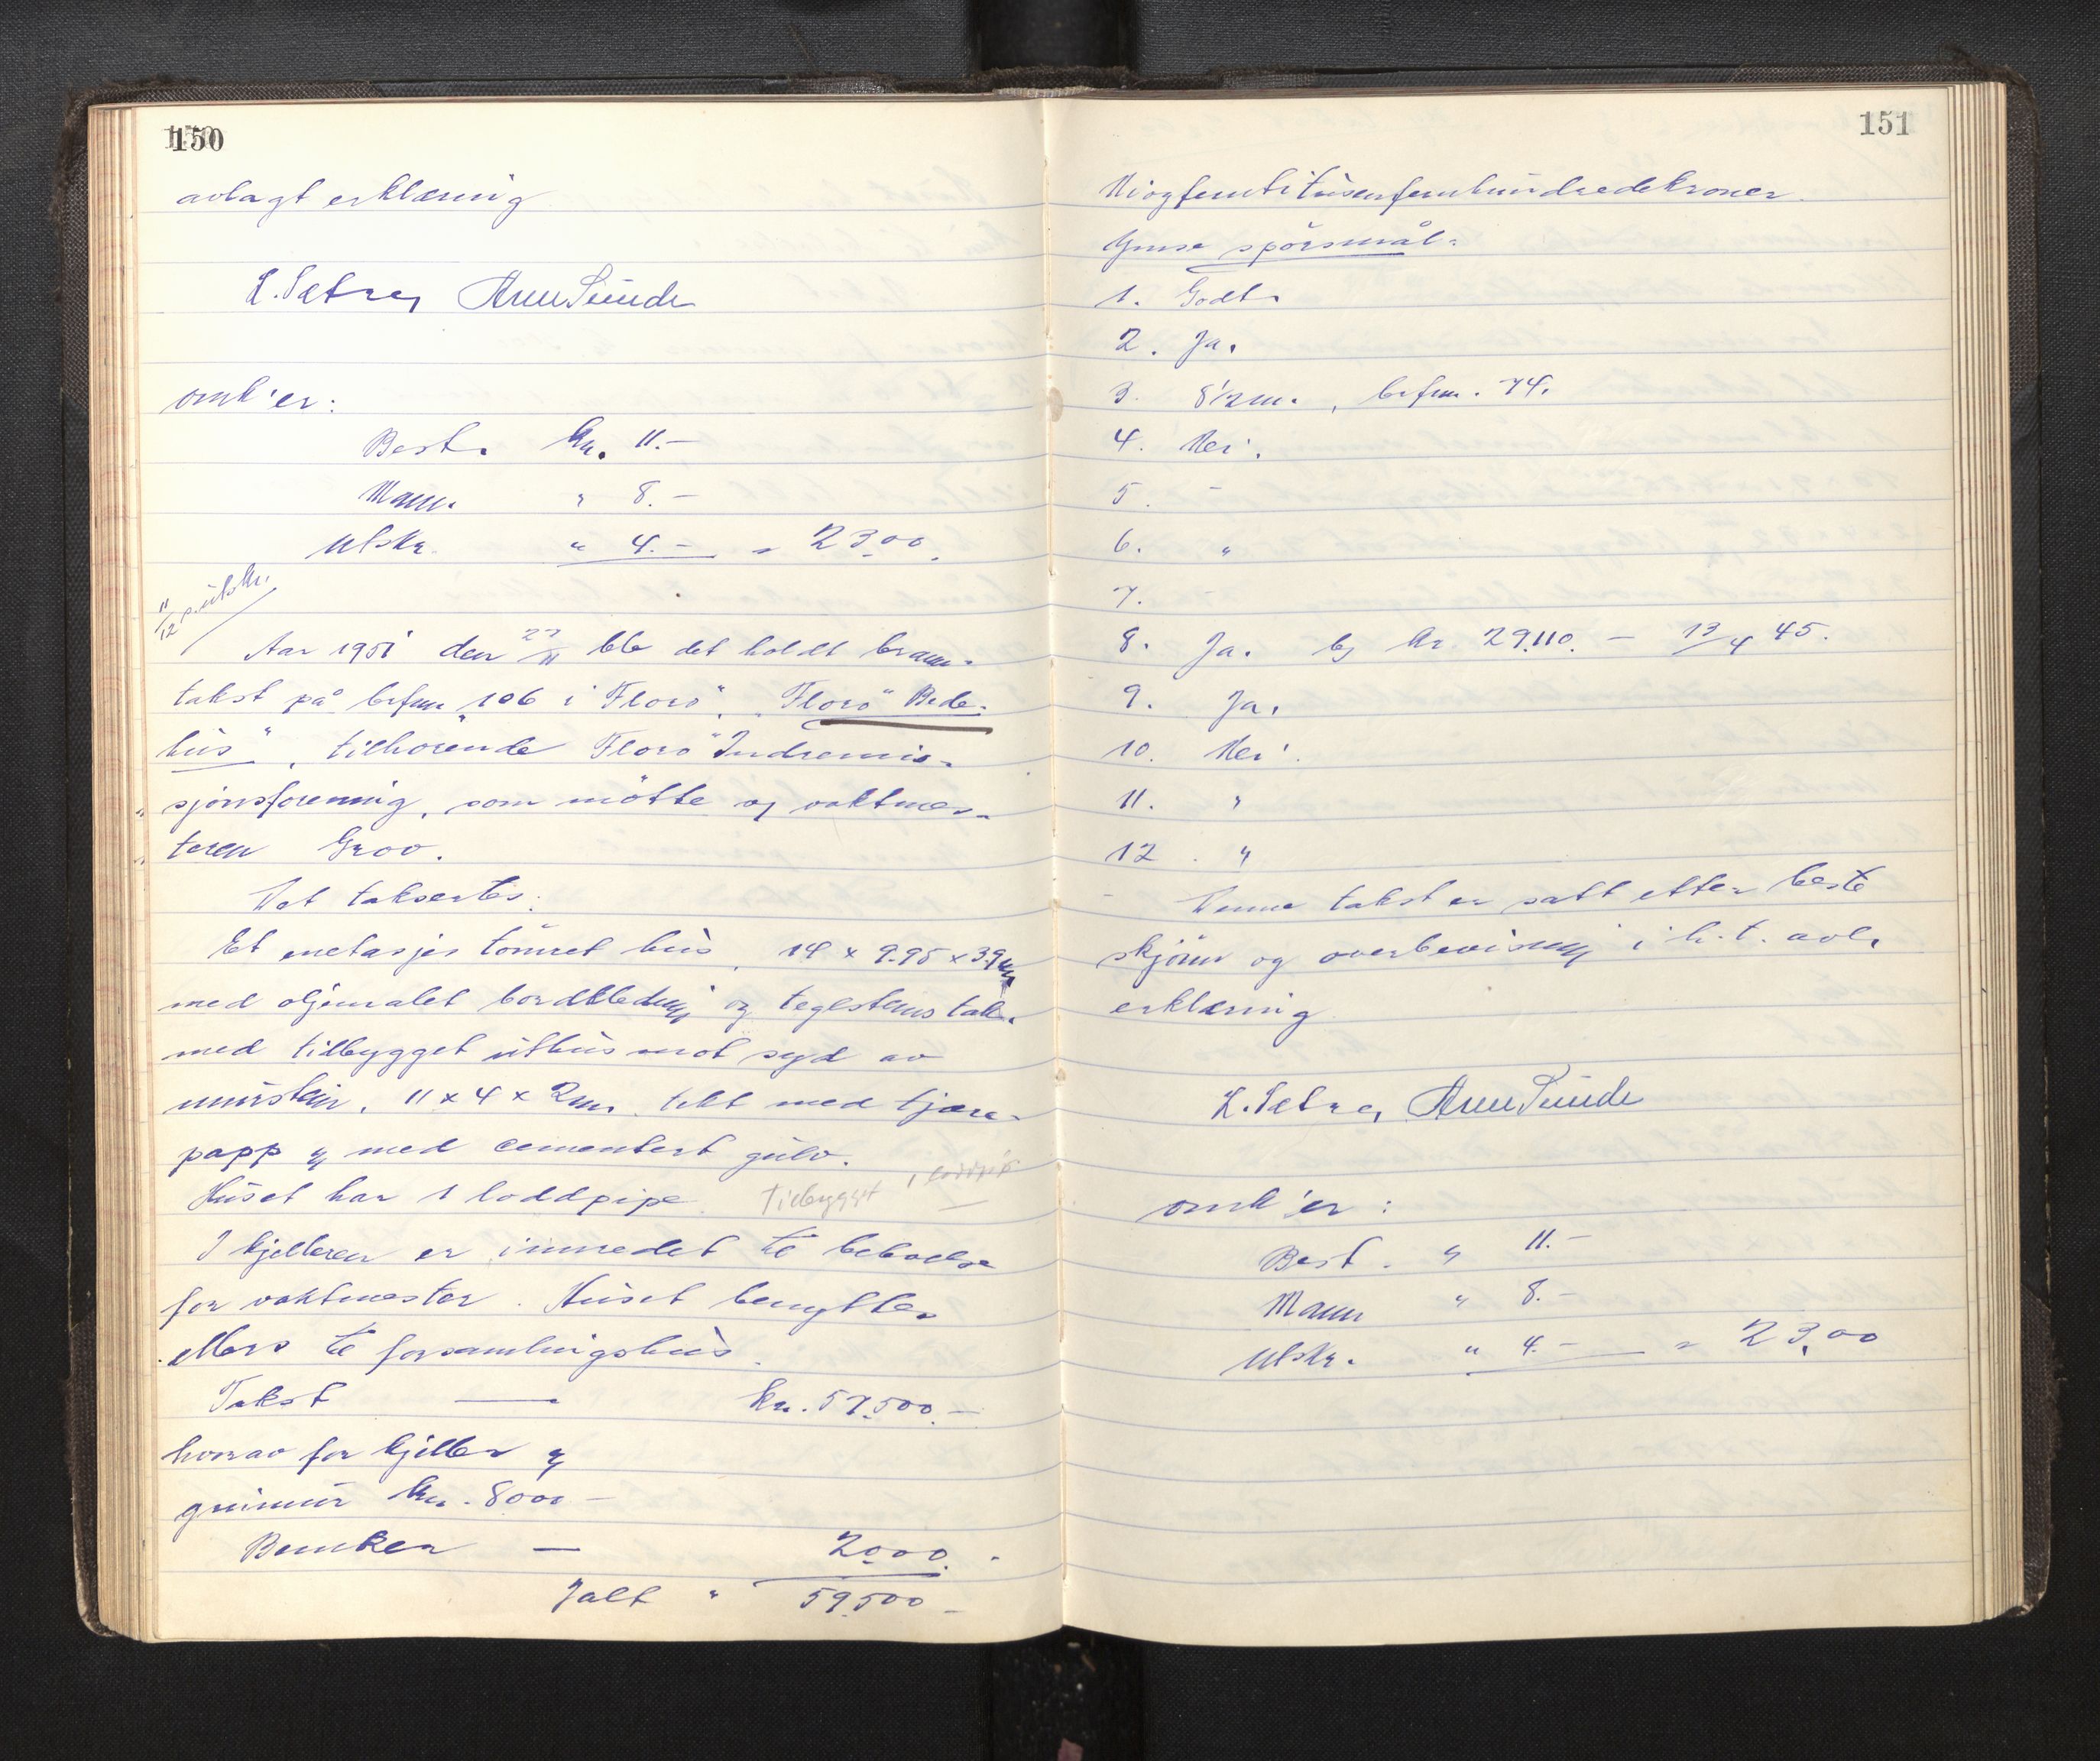 150
avlagt erklæring
L. Sætre, Arne Sunde
omk'er:
Best. kr. 11.-
Mann. " 8.-
Utskr. " 4.- = 23.00.
11/12 utskr.
Aar 1951 den 27/11 ble det holdt brann-
takst på brfnr. 106 i Florö. "Florö Bede-
hus", tilhorende Florö Indremis-
sjonsforening, som mötte og vaktmes-
teren Grov.
Det taksertes:
Et enetasjes tömret hus, 14 x 9.95 x 3.9 m
med oljemalet bordkledning og teglstenstak.
med tilbygget uthus mot syd av
murstein, 11 x 4 x 2 m. tekt med tjære-
papp og med cementert gulv.
Huset har 1 loddpipe. Tilbygget 1 loddpip
I kjelleren er innredet til beboelse
for vaktmester. Huset benyttes
ellers til forsamlingshus.
Takst — kr. 57.500.-
hvorav for kjeller og
grunnmur kr. 8000 -
Benker — 2000.-
Ialt " 59.500 -
151
Niogfemtitusenfemhundredekroner.
Ymse spörsmål:
1. Godt.
2. Ja.
3. 8 1/2 m., brfnr. 74.
4. Nei.
5. -
6. "
7.
8. Ja. og kr 29.110. - 13/4 45.
9. Ja.
10. Nei.
11. "
12. "
Denne takst er satt etter beste
skjönn og overbevisning i h.t. avl.
erklæring
L. Sætre, Arne Sunde
omk'er:
Best. " 11.-
Mann " 8.-
Utskr. " 4.- = 23.00